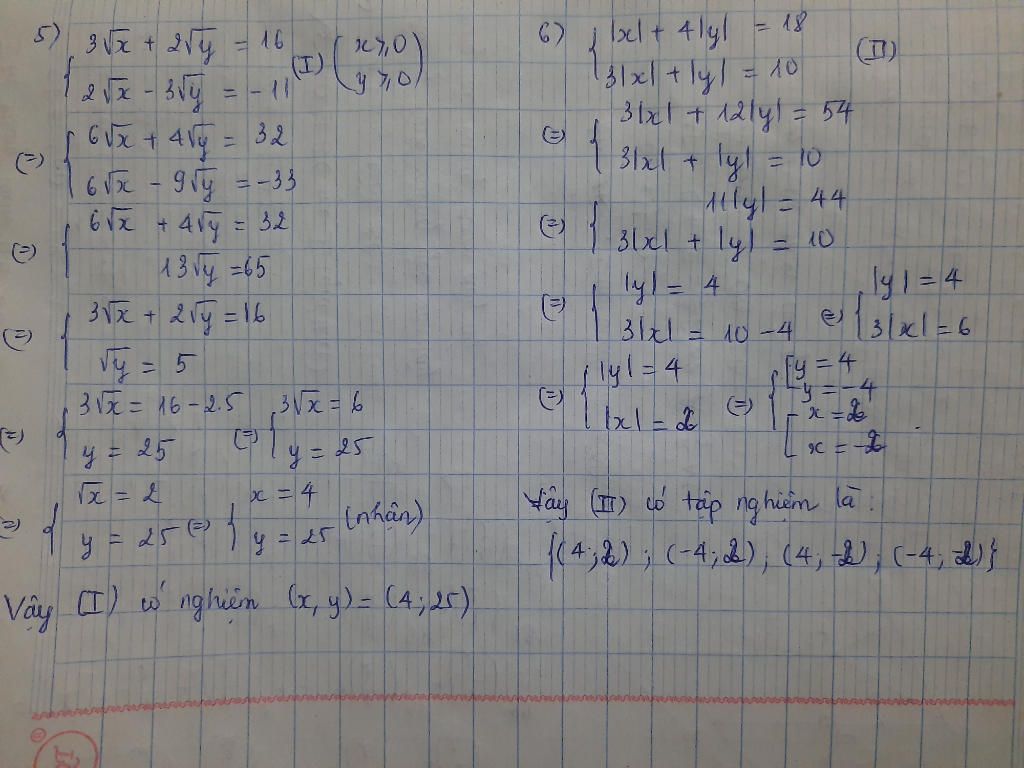 5) { 3√x + 2√y = 16
2√x - 3√y = -11 (I) (x ⩾ 0
y ⩾ 0)
(=) { 6√x + 4√y = 32
6√x - 9√y = -33
(=) { 6√x + 4√y = 32
13√y = 65
(=) { 3√x + 2√y = 16
√y = 5
(=) { 3√x = 16 - 2.5
y = 25 (=) { 3√x = 6
y = 25
(=) { √x = 2
y = 25 (=) { x = 4
y = 25 (nhận)
Vậy (I) có nghiệm (x, y) = (4; 25)
6) { |x| + 4|y| = 18
3|x| + |y| = 10 (II)
(=) { 3|x| + 12|y| = 54
3|x| + |y| = 10
(=) { 11|y| = 44
3|x| + |y| = 10
(=) { |y| = 4
3|x| = 10 - 4 (=) { |y| = 4
3|x| = 6
(=) { |y| = 4
|x| = 2 (=) { [ y = 4
y = -4
[ x = 2
x = -2
Vậy (II) có tập nghiệm là:
{(4; 2) ; (-4; 2) ; (4; -2) ; (-4; -2)}